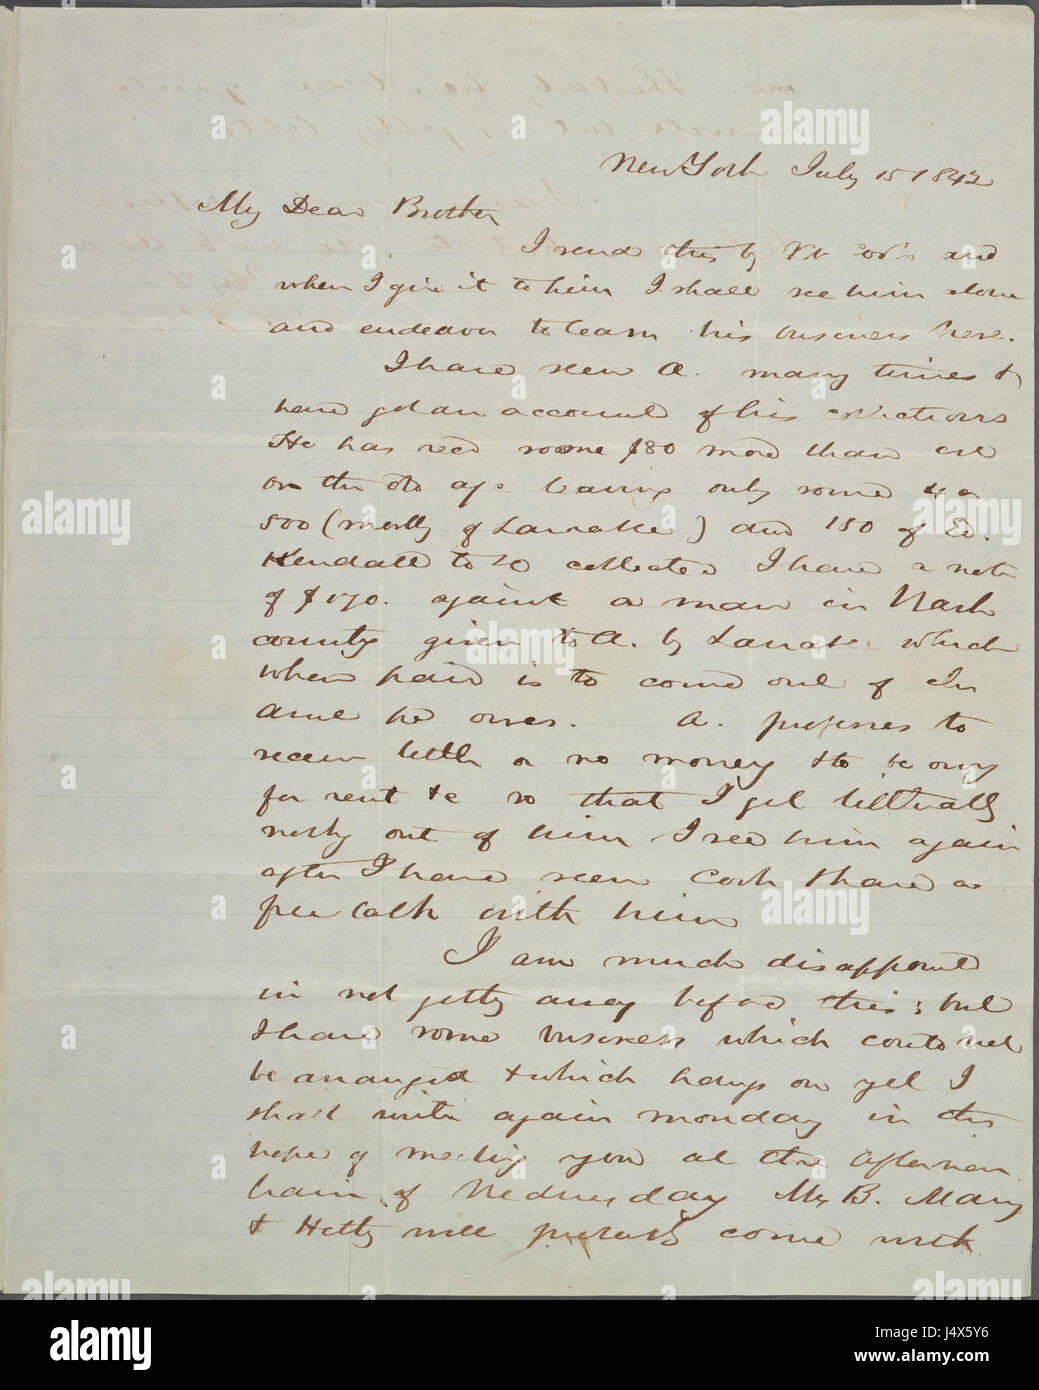 New York July 15 1842
My Dear Brother
I send this by and
when I give it to him I shall see him alone
and endeavor to learn his business here.
I have seen A. many times &
have got an account of his collections
He has recd some $80 more than
on the old leaving only some
500 (mostly of Larrabee) and 150 of Ed.
Kendall to collected I have a note
of against a man in Nash
county given to A. by which
when paid is to come out of
he owes. A. professes to
little or no money & to be owing
for rent &c so that I get
out of him I see him again
after I have seen & have a
free talk with him
I am much disappointed
in not getting away before this; but
I have some business which could not
be arranged & which hangs on yet I
shall write again monday in the
hope of meeting you at the afternoon
train of Wednesday Mr B. Mary
& Hetty will probably come with
alamy
a
alamy stock photo
J4X5Y6
www.alamy.com